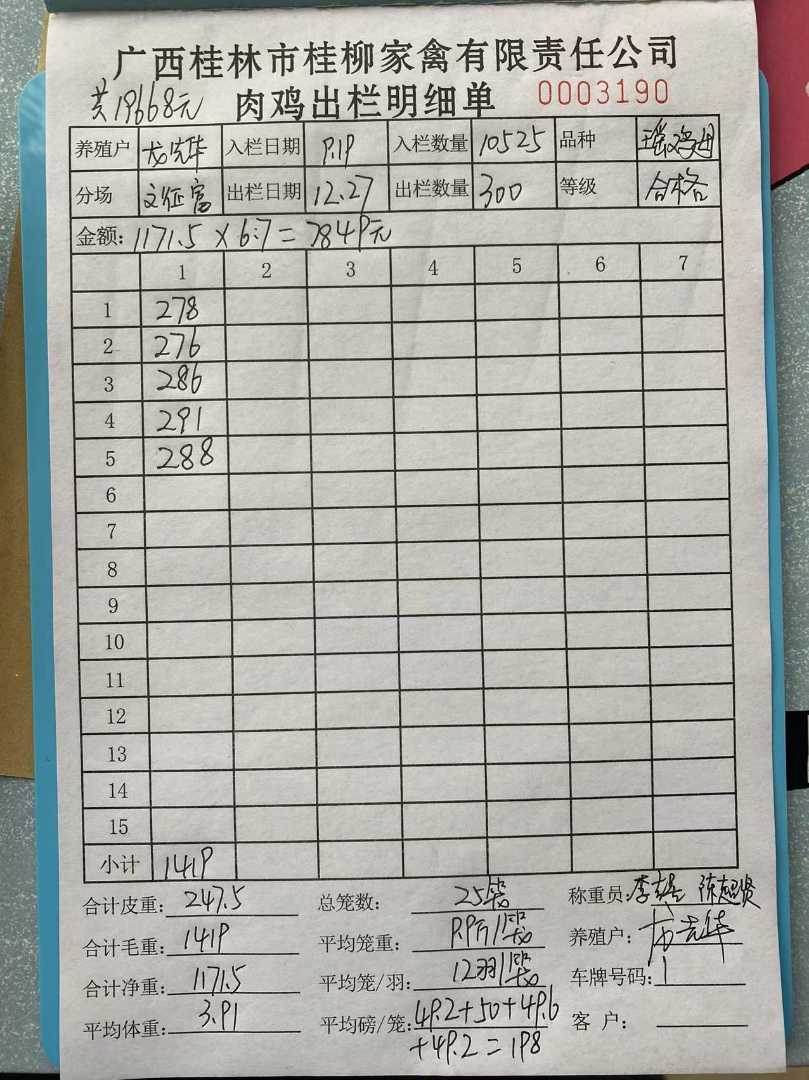 广西桂林市桂柳家禽有限责任公司
共19668元 肉鸡出栏明细单 0003190
养殖户 龙先华 入栏日期 9.19 入栏数量 10525 品种 瑶鸡
分场 文征富 出栏日期 12.27 出栏数量 300 等级 合格
金额: 1171.5 × 6.7 = 7849元
1 2 3 4 5 6 7
1 278
2 276
3 286
4 291
5 288
6
7
8
9
10
11
12
13
14
15
小计 1419
合计皮重: 247.5 总笼数: 25笼 称重员: 李 陈超贤
合计毛重: 1419 平均笼重: 9.9斤/笼 养殖户: 龙先华
合计净重: 1171.5 平均笼/羽: 12羽/笼 车牌号码:
平均体重: 3.91 平均磅/笼: 49.2+50+49.6 客 户:
+49.2=198